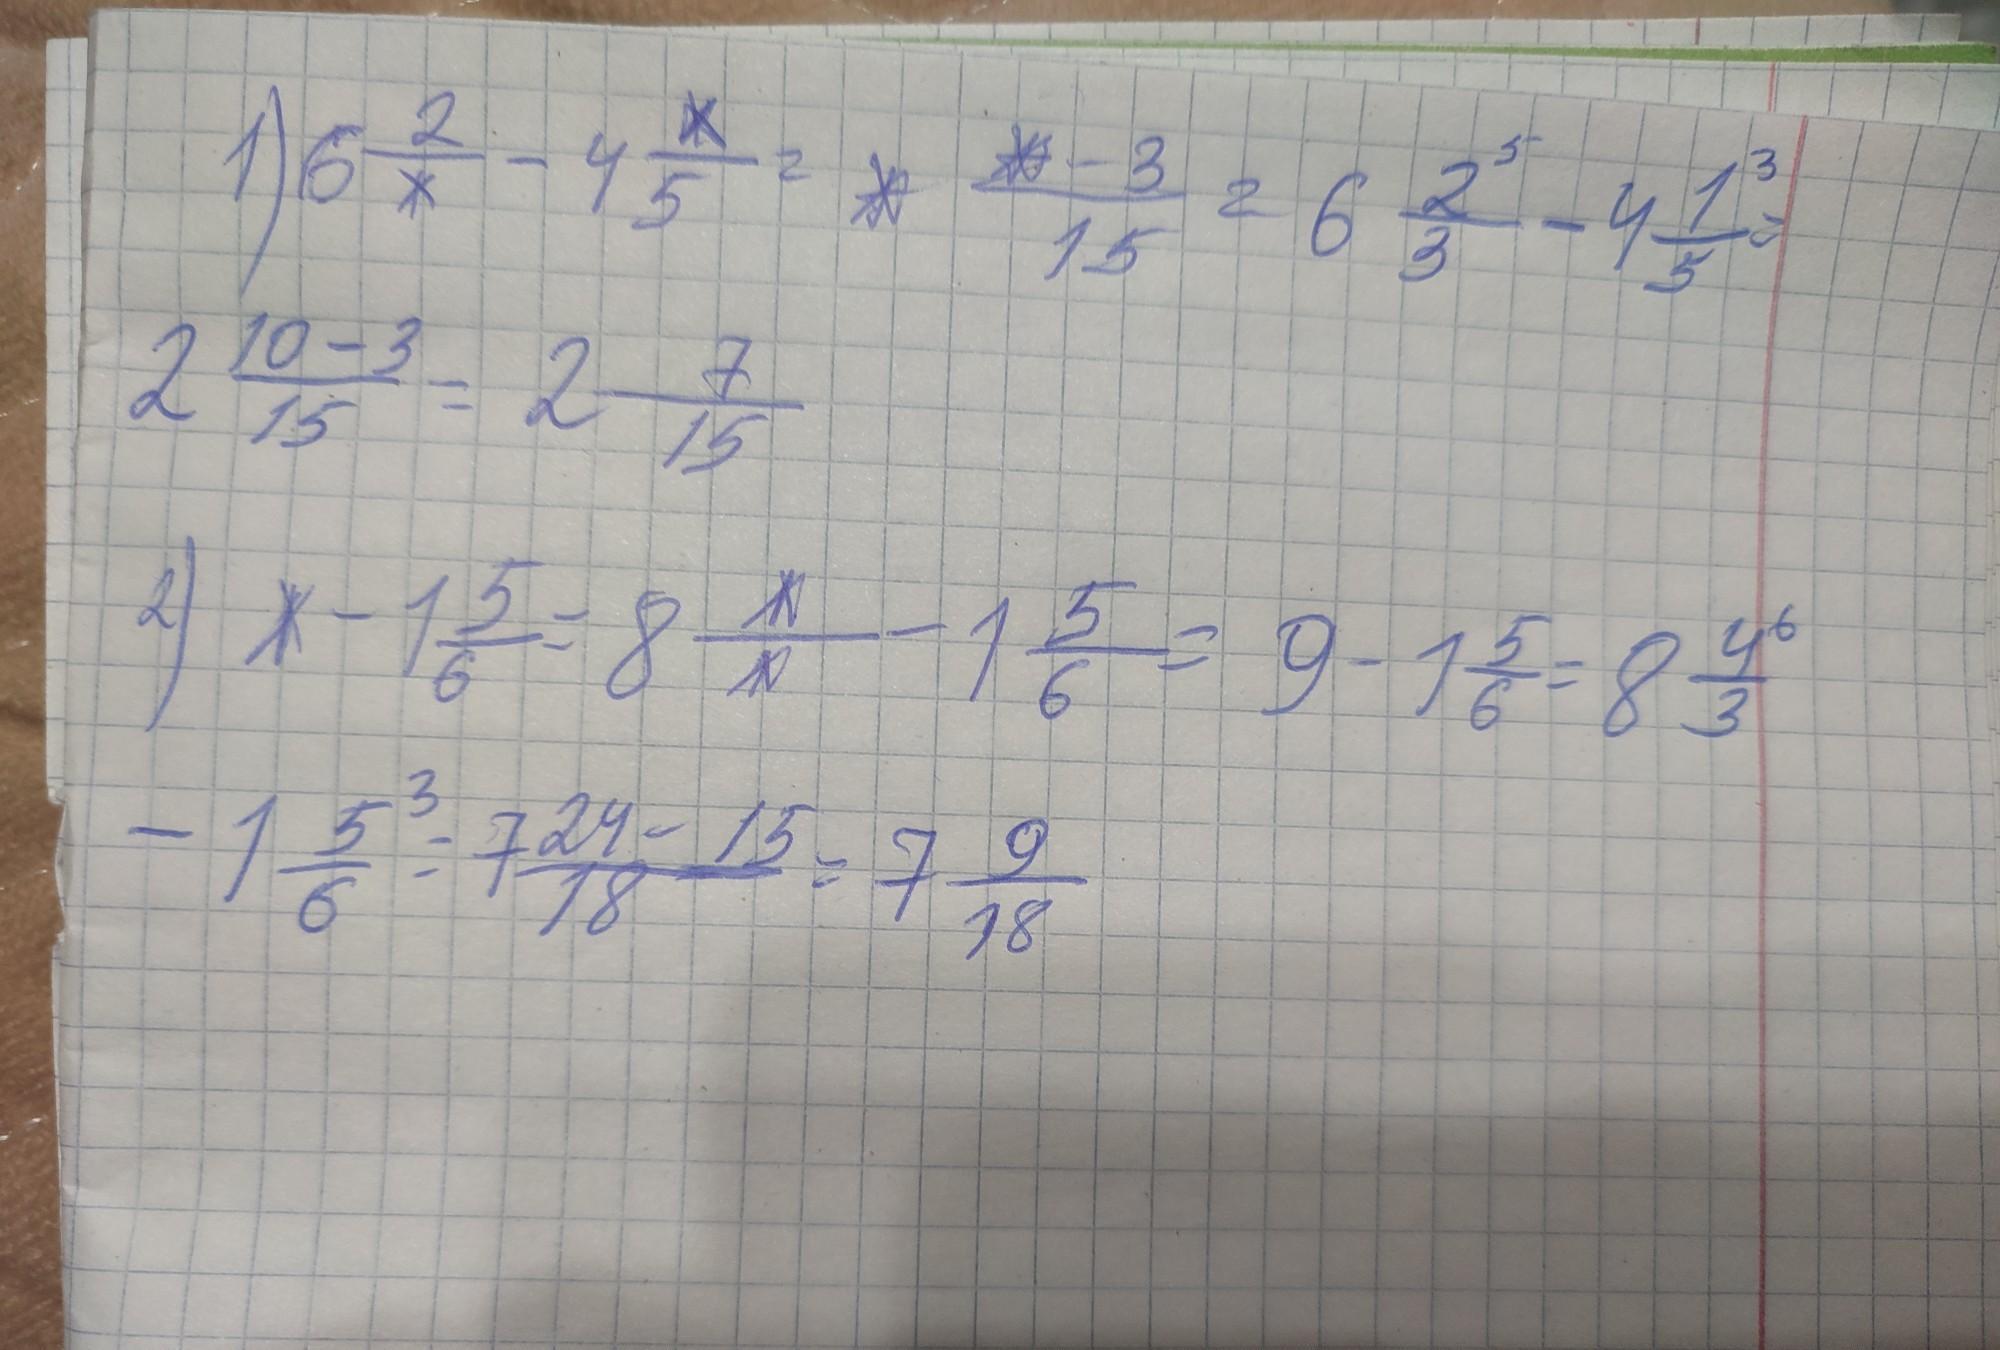 1) 6 2/* - 4 */5 = * (* - 3)/15 = 6 2/3 ⁵ - 4 1/5 ³ =
2 (10 - 3)/15 = 2 7/15
2) * - 1 5/6 = 8 */* - 1 5/6 = 9 - 1 5/6 = 8 4/3 ⁶
- 1 5/6 ³ = 7 (24 - 15)/18 = 7 9/18